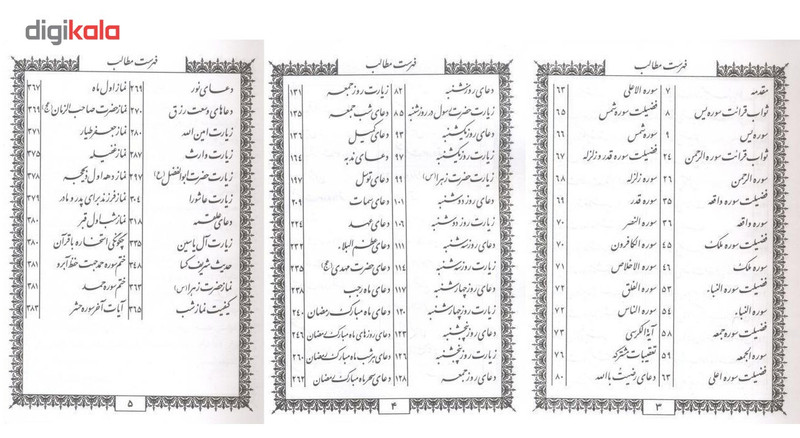 digikala
فهرست مطالب
مقدمه ۷
ثواب قرائت سوره یس ۸
سوره یس ۹
ثواب قرائت سوره الرحمن ۲۴
سوره الرحمن ۲۶
فضیلت سوره واقعه ۳۵
سوره واقعه ۳۶
فضیلت سوره ملک ۴۵
سوره ملک ۴۶
فضیلت سوره النباء ۵۳
سوره النباء ۵۴
فضیلت سوره جمعه ۵۸
سوره الجمعه ۵۹
فضیلت سوره اعلی ۶۳
سوره الاعلی ۶۳
فضیلت سوره شمس ۶۵
سوره شمس ۶۶
فضیلت سوره قدر و زلزله ۶۷
سوره زلزله ۶۸
سوره قدر ۶۹
سوره النصر ۷۰
سوره الکافرون ۷۰
سوره الاخلاص ۷۱
سوره الفلق ۷۲
سوره الناس ۷۲
آیة الکرسی ۷۳
تعقیبات مشترکه ۷۶
دعای رضیت باالله ۸۰
۳
فهرست مطالب
دعای روز شنبه ۸۲
زیارت حضرت رسول در روز شنبه ۸۵
دعای روز یکشنبه ۹۳
زیارت روز یکشنبه ۹۷
زیارت حضرت زهرا (س) ۹۹
دعای روز دوشنبه ۱۰۱
زیارت روز دوشنبه ۱۰۶
دعای روز سه شنبه ۱۱۱
زیارت روز سه شنبه ۱۱۴
دعای روز چهارشنبه ۱۱۷
زیارت روز چهارشنبه ۱۲۰
دعای روز پنجشنبه ۱۲۳
زیارت روز پنجشنبه ۱۲۶
دعای روز جمعه ۱۲۸
زیارت روز جمعه ۱۳۱
دعای شب جمعه ۱۳۵
دعای کمیل ۱۳۶
دعای ندبه ۱۶۴
دعای توسل ۱۹۷
دعای سمات ۲۰۹
دعای عهد ۲۲۴
دعای عظم البلاء ۲۳۲
دعای حضرت مهدی (عج) ۲۳۵
دعای ماه رجب ۲۳۸
دعای ماه مبارک رمضان ۲۴۰
دعای روزهای ماه مبارک رمضان
دعای هر شب ماه مبارک رمضان ۲۶۰
دعای سحر ماه مبارک رمضان ۲۶۲
۴
فهرست مطالب
دعای نور ۲۶۹
دعاهای وسعت رزق ۲۷۰
زیارت امین الله ۲۸۰
زیارت وارث ۲۸۷
زیارت حضرت ابوالفضل (ع) ۲۹۷
زیارت عاشورا ۳۰۴
دعای علقمه ۳۱۸
زیارت آل یاسین ۳۳۵
حدیث شریف کسا ۳۴۸
نماز حضرت زهرا (س)
کیفیت نماز شب ۳۶۵
نماز اول ماه ۳۶۷
نماز حضرت صاحب الزمان (عج) ۳۶۹
نماز جعفر طیار ۳۷۱
نماز غفیله ۳۷۵
نماز دهه اول ذیحجه ۳۷۸
نماز فرزند برای پدر و مادر ۳۷۹
نماز شب اول قبر ۳۸۰
چگونگی استخاره با قرآن ۳۸۰
ختم سوره حمد جهت حفظ آبرو ۳۸۱
ختم سوره حمد ۳۸۱
آیات آخر سوره حشر ۳۸۳
۵